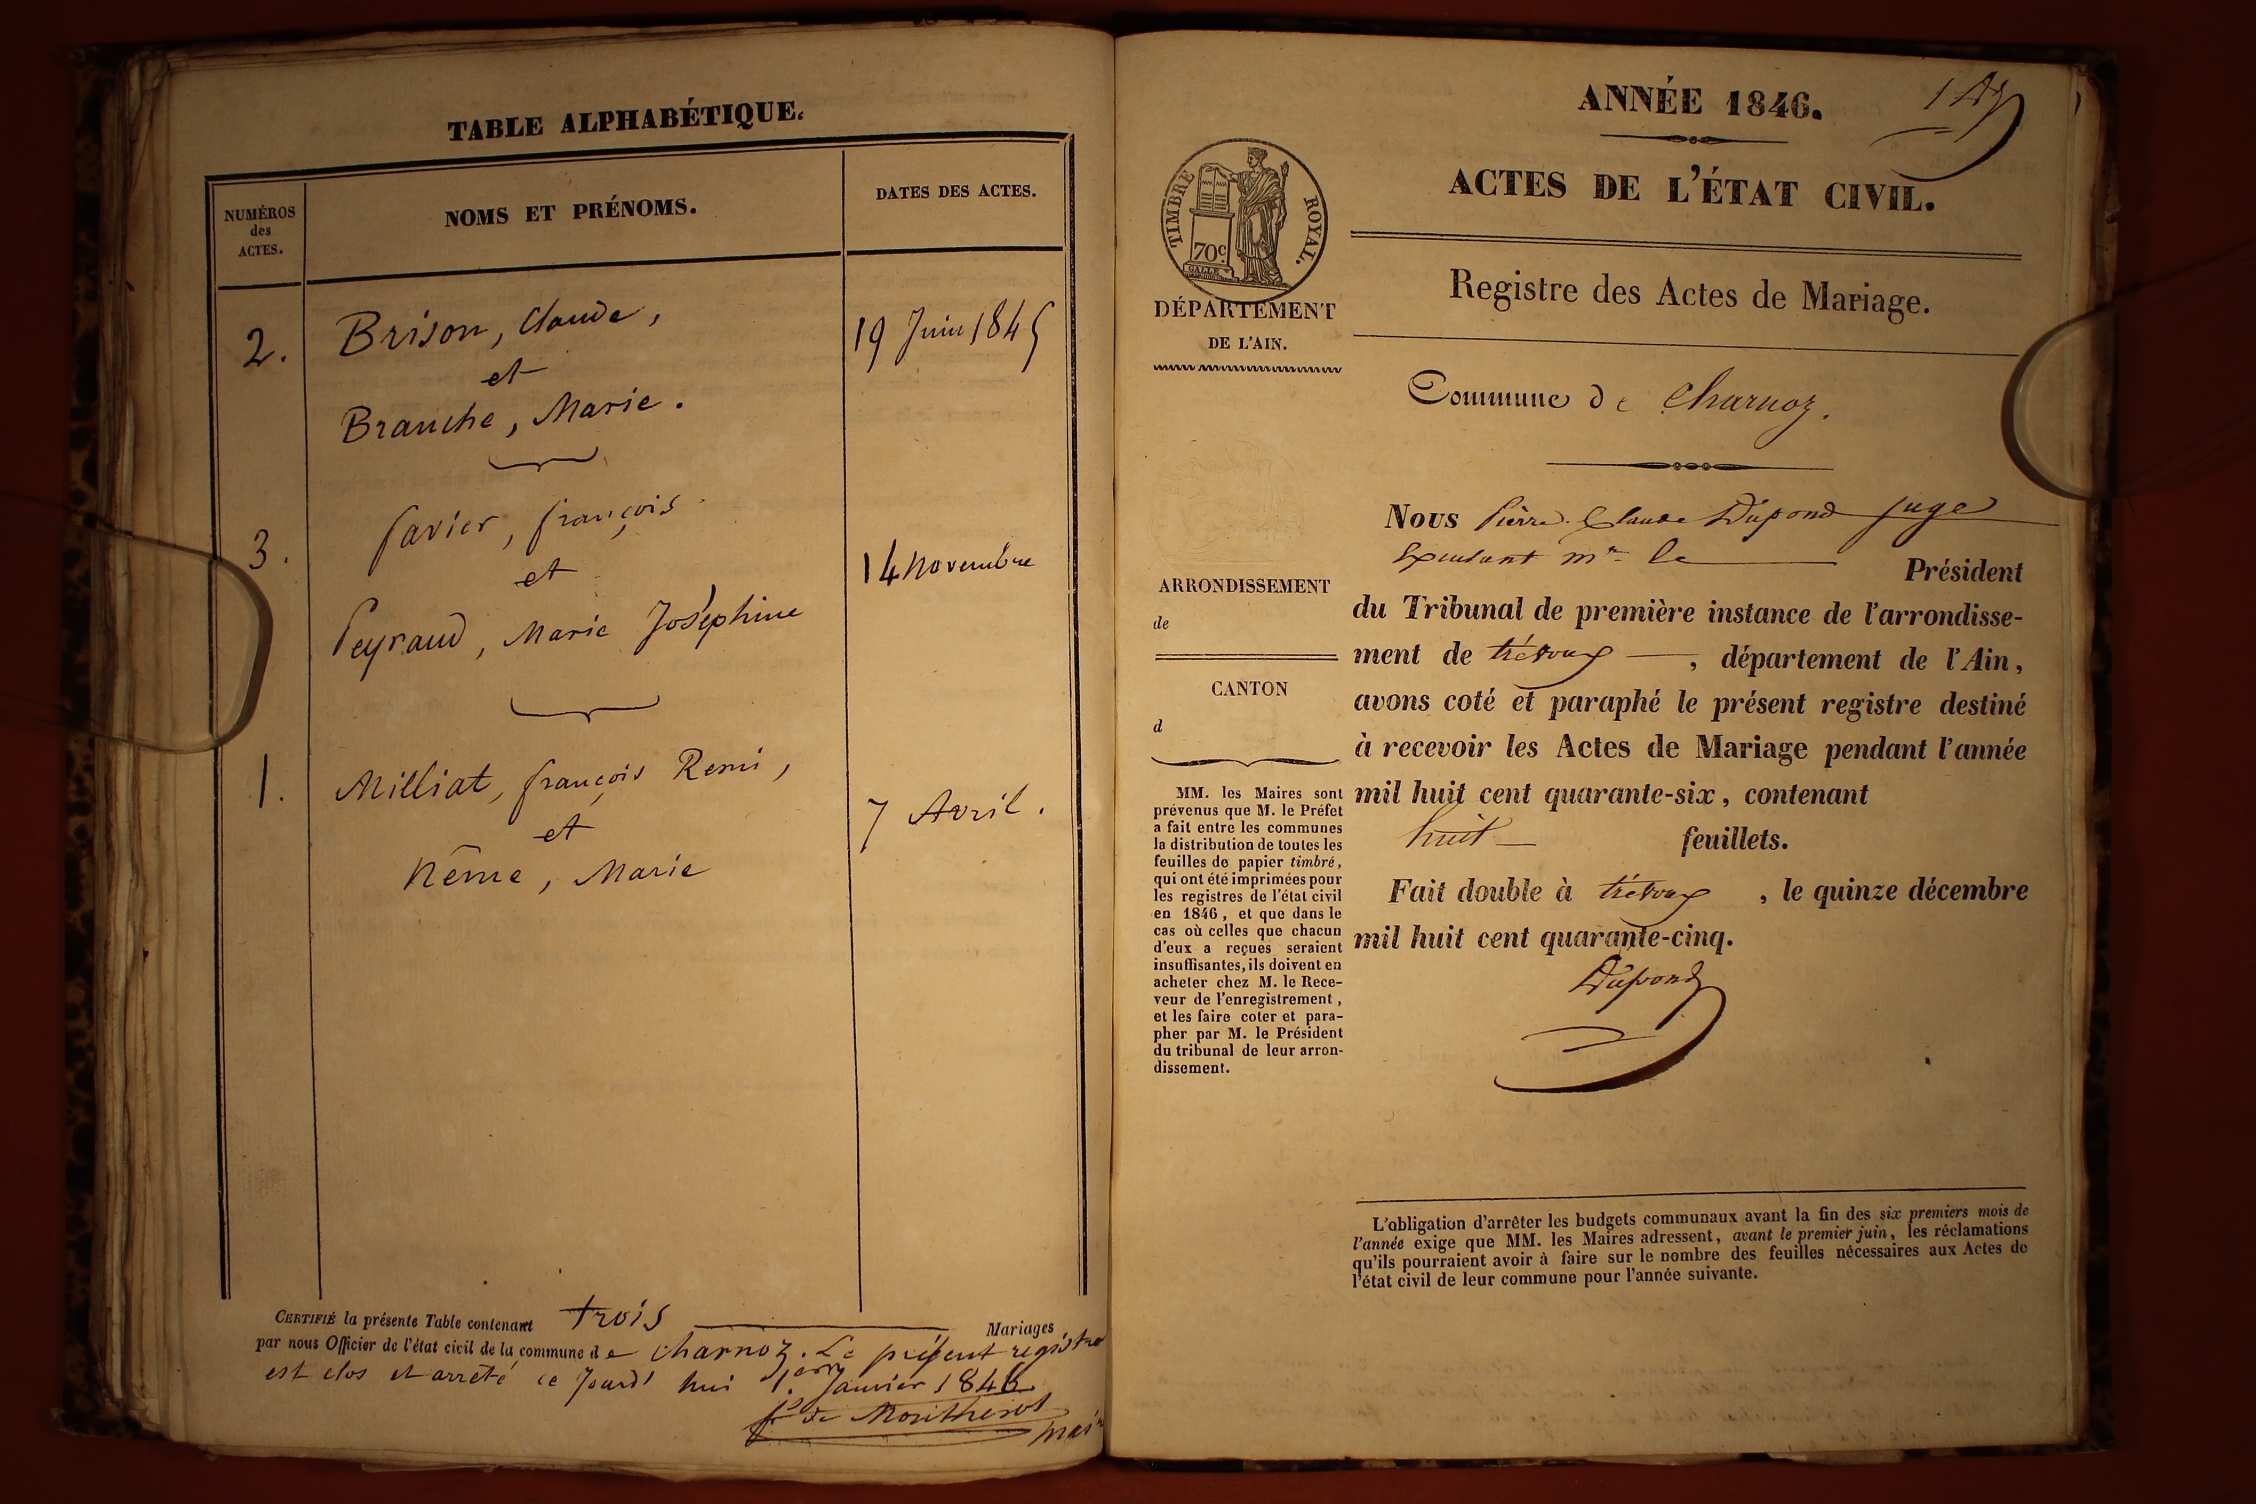 TABLE ALPHABÉTIQUE.
NUMÉROS
des
ACTES.
NOMS ET PRÉNOMS.
DATES DES ACTES.
2. Brison, Claude, 19 Juin 1845
et
Branche, Marie.
3. favier, françois 14 Novembre
et
Peyraud, Marie Joséphine
1. Milliat, françois Remi, 7 Avril.
et
Nême, Marie
CERTIFIÉ la présente Table contenant trois Mariages
par nous Officier de l'état civil de la commune de Charnoz. Le présent registre
est clos et arrêté ce Jourd'hui 1er Janvier 1846
fs de Montherot
maire
ANNÉE 1846.
ACTES DE L'ÉTAT CIVIL.
TIMBRE ROYAL.
70c.
DÉPARTEMENT
DE L'AIN.
Registre des Actes de Mariage.
Commune de Charnoz.
ARRONDISSEMENT
de
CANTON
d
MM. les Maires sont
prévenus que M. le Préfet
a fait entre les communes
la distribution de toutes les
feuilles de papier timbré,
qui ont été imprimées pour
les registres de l'état civil
en 1846, et que dans le
cas où celles que chacun
d'eux a reçues seraient
insuffisantes, ils doivent en
acheter chez M. le Rece-
veur de l'enregistrement,
et les faire coter et para-
pher par M. le Président
du tribunal de leur arron-
dissement.
Nous Pierre Claude Dupond juge
Mr le Président
du Tribunal de première instance de l'arrondisse-
ment de trévoux, département de l'Ain,
avons coté et paraphé le présent registre destiné
à recevoir les Actes de Mariage pendant l'année
mil huit cent quarante-six, contenant
huit feuillets.
Fait double à trévoux, le quinze décembre
mil huit cent quarante-cinq.
Dupond
L'obligation d'arrêter les budgets communaux avant la fin des six premiers mois de
l'année exige que MM. les Maires adressent, avant le premier juin, les réclamations
qu'ils pourraient avoir à faire sur le nombre des feuilles nécessaires aux Actes de
l'état civil de leur commune pour l'année suivante.